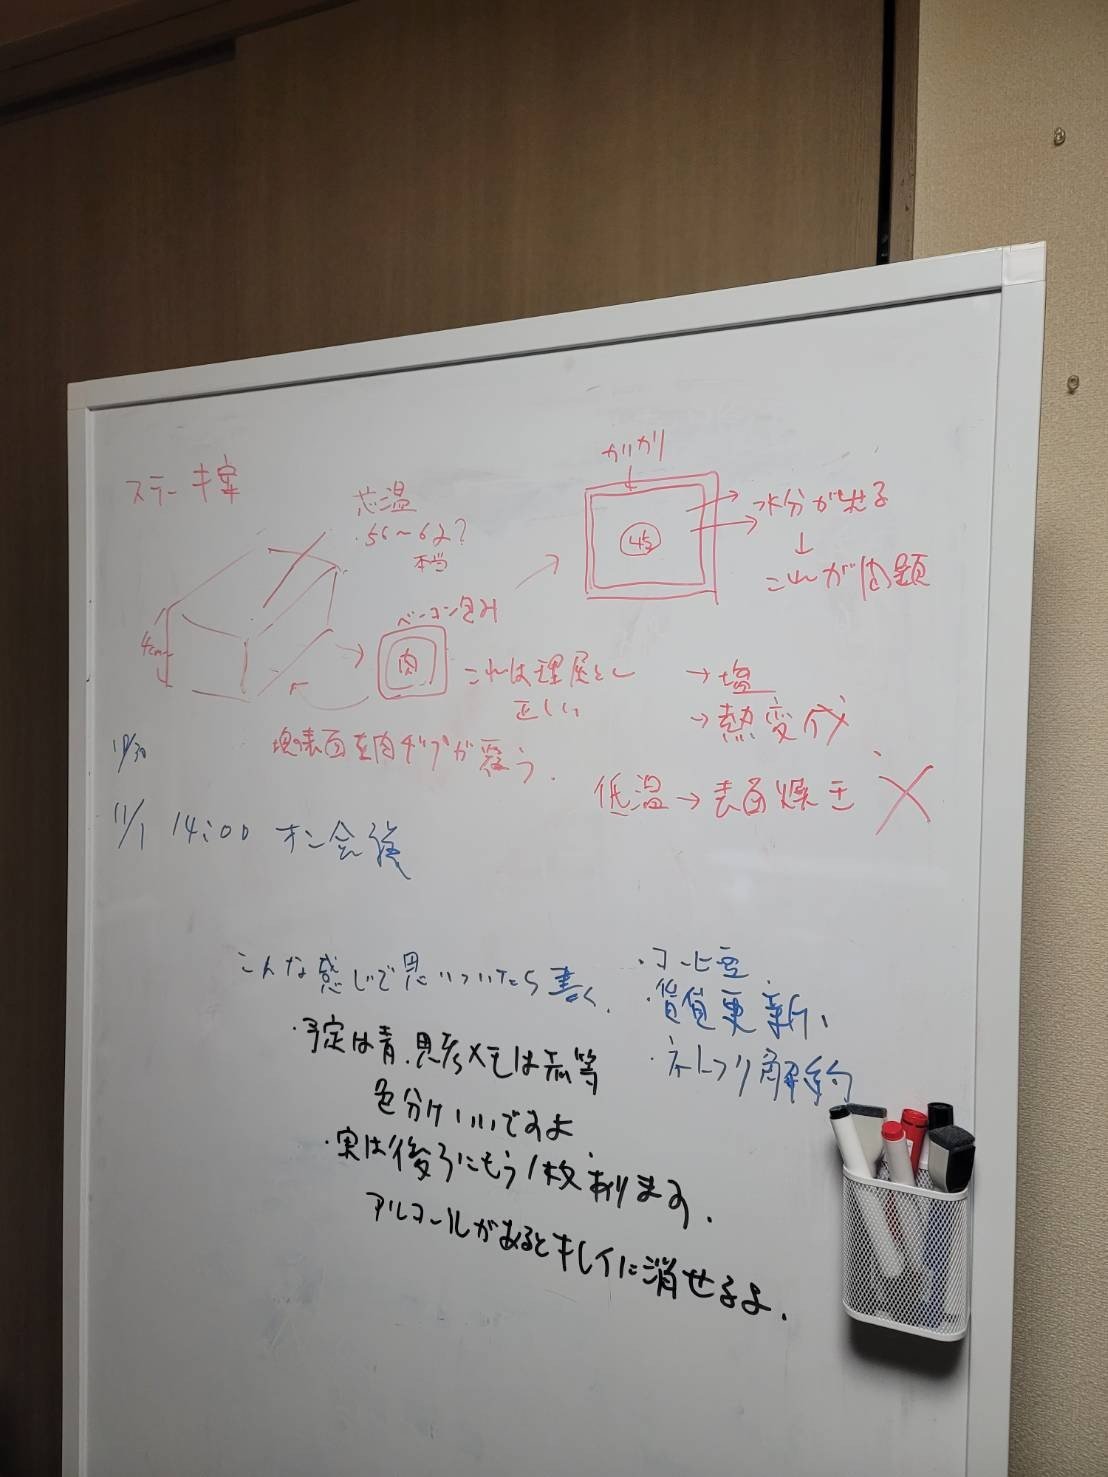 ステーキ案
芯温
・56〜62?
本当
4cm
ベーコン包み
肉
これは理屈として
正しい
塊表面を肉が覆う.
カリカリ
水分が出る
↓
これが問題
→塩
→熱変成
低温→表面焼き ×
10/30
11/1 14:00 オン会後
こんな感じで思いついたら書く.
・予定は青.思考メモは赤等
色分けいいですよ
・実は後ろにもう1枚あります.
アルコールがあるとキレイに消せるよ.
・コーヒ豆
・賃貸更新、
・ネトフリ解約